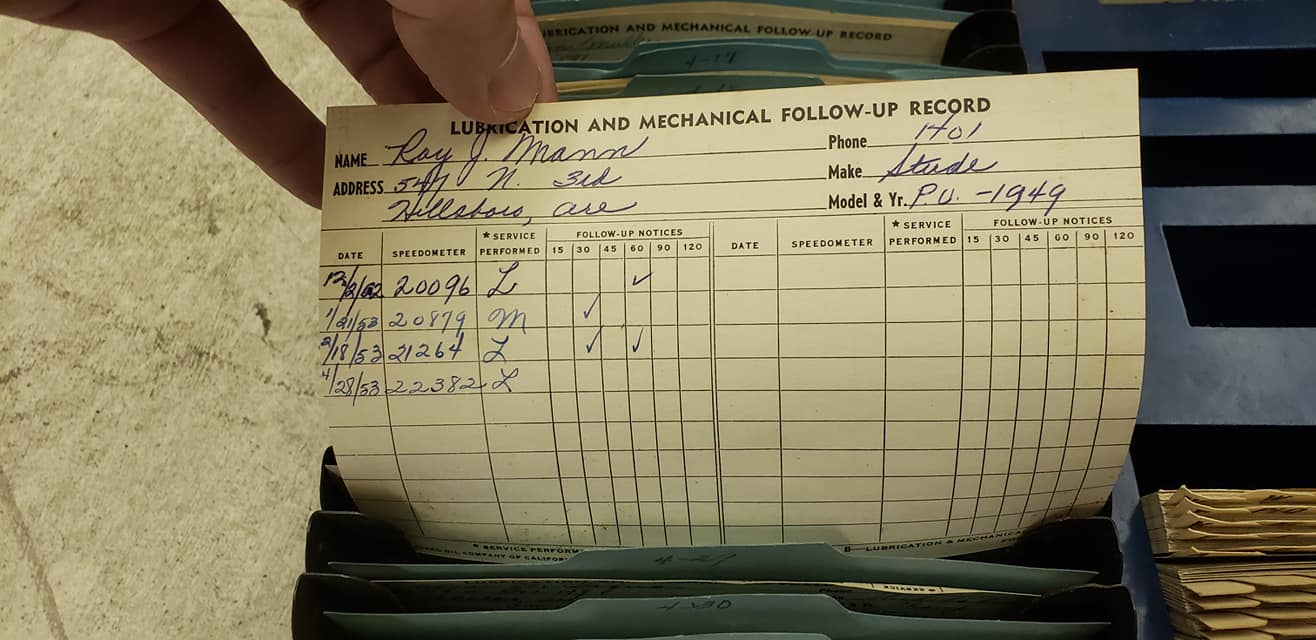 LUBRICATION AND MECHANICAL FOLLOW-UP RECORD
4-14
LUBRICATION AND MECHANICAL FOLLOW-UP RECORD
NAME Roy J. Mann Phone 1401
ADDRESS 547 N. 3rd Make Stude
Hillsboro, Ore Model & Yr. P.U. -1949
DATE SPEEDOMETER * SERVICE PERFORMED FOLLOW-UP NOTICES 15 30 45 60 90 120 DATE SPEEDOMETER * SERVICE PERFORMED FOLLOW-UP NOTICES 15 30 45 60 90 120
12/2/52 20096 L ✓
1/21/53 20879 M ✓
2/18/53 21264 L ✓ ✓
4/28/53 22382 L
* SERVICE PERFORM B—LUBRICATION & MECHANICA
OIL COMPANY OF CALIFOR
4-30